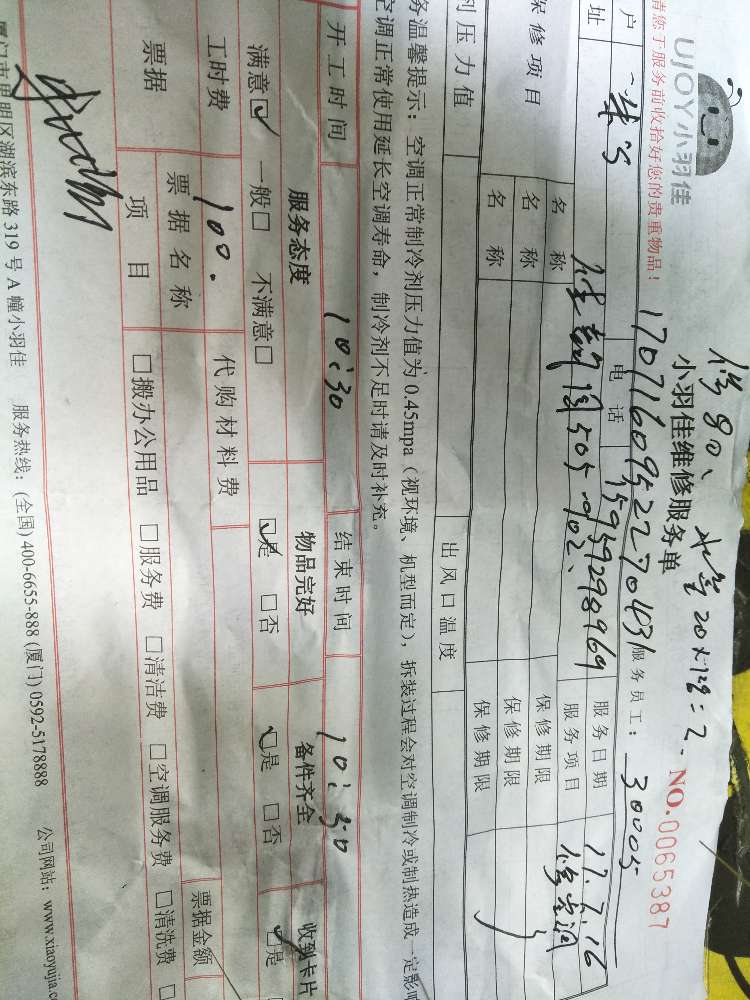 UJOY小羽佳
修 20×128=2.
小羽佳维修服务单
NO.0065387
请您于服务前收拾好您的贵重物品！
17071609522704831
服务员工：
30005
户
电 话
15959298969
服务日期
17.7.16
址
505-902、
服务项目
保修项目
名 称
保修期限
名 称
保修期限
名 称
保修期限
剂压力值
出风口温度
务温馨提示：空调正常制冷剂压力值为0.45mpa（视环境、机型而定），拆装过程会对空调制冷或制热造成一定影响
空调正常使用延长空调寿命，制冷剂不足时请及时补充。
开工时间
10:30
结束时间
10:50
服务态度
物品完好
备件齐全
收到卡片
满意☑ 一般□ 不满意□
☑是 □否
☑是 □否
☑是
工时费
100.
代购材料费
票据
票据名称
票据金额
项 目
□搬办公用品 □服务费 □清洁费 □空调服务费 □清洗费 □
厦门市思明区湖滨东路319号A幢小羽佳 服务热线：(全国) 400-6655-888 (厦门) 0592-5178888 公司网站：www.xiaoyujia.c